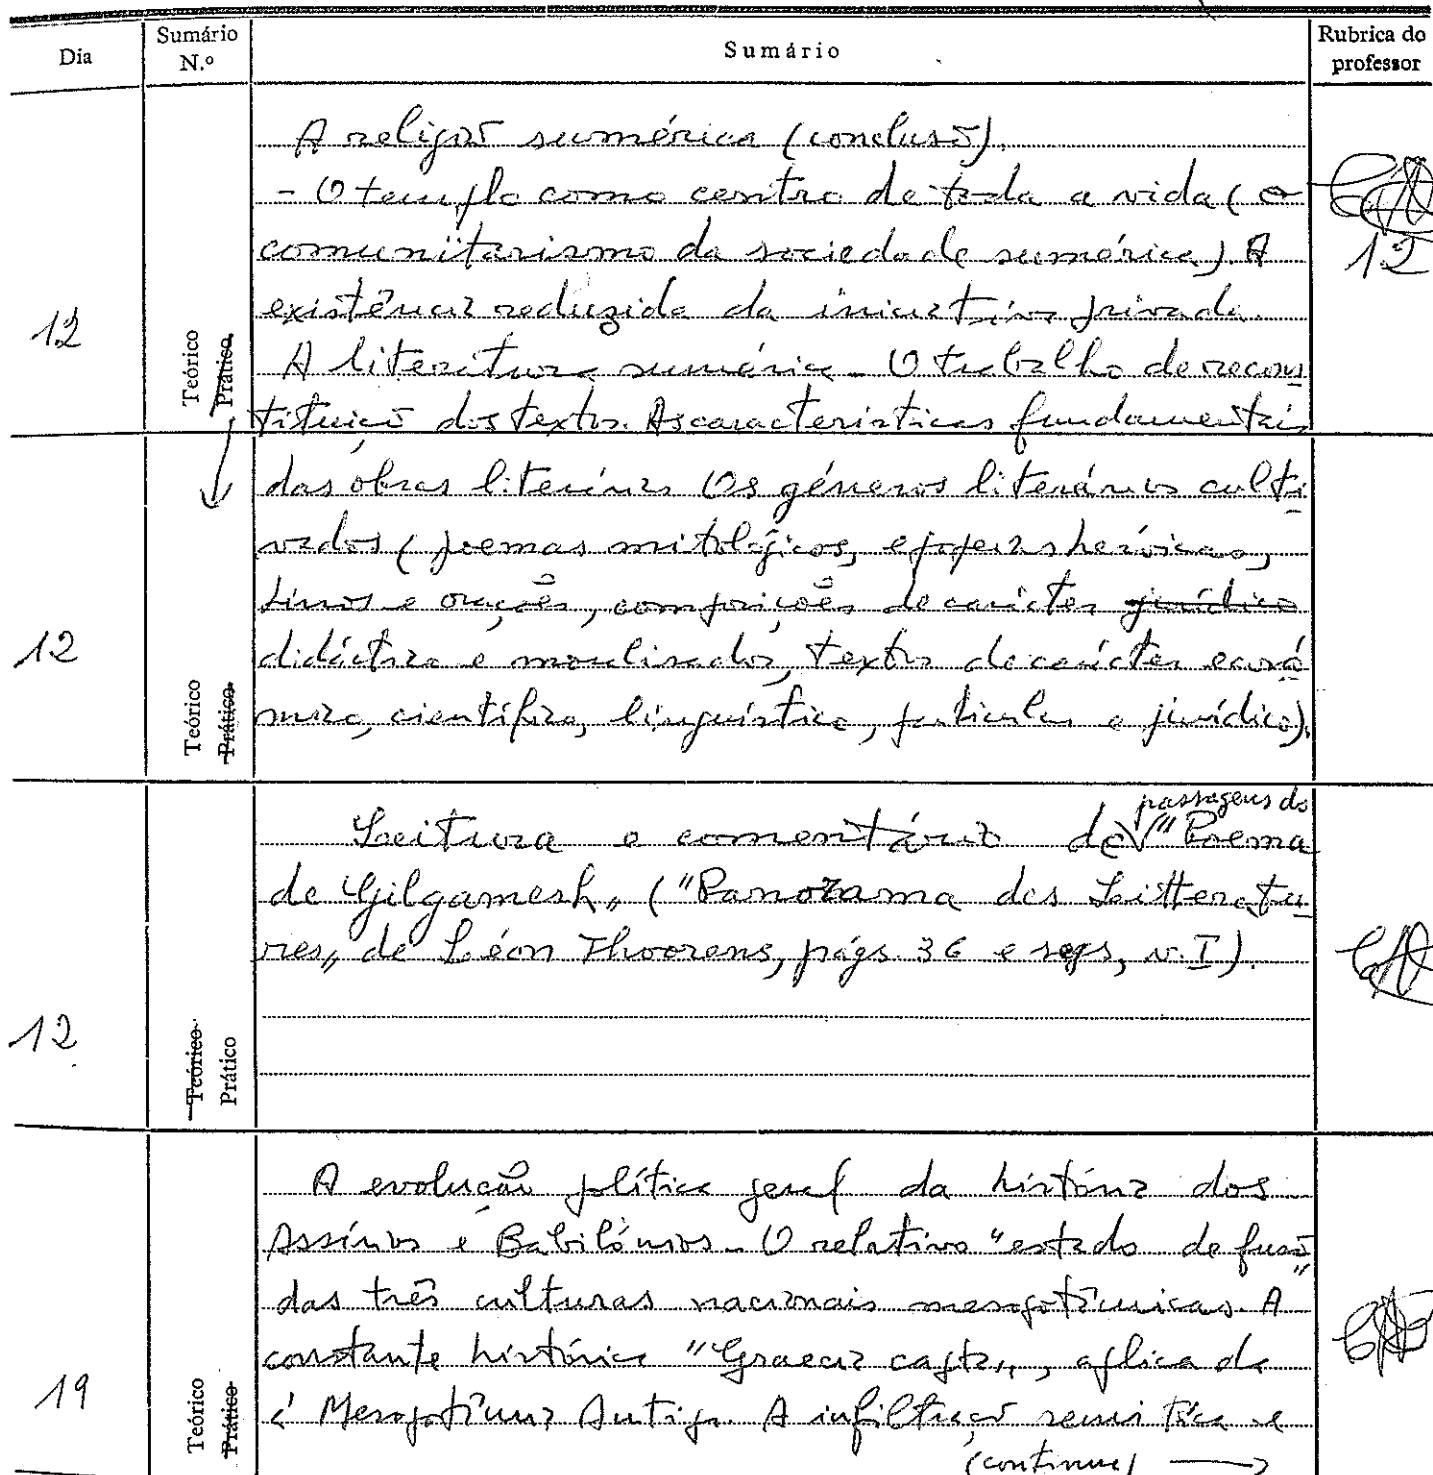 Dia
Sumário N.º
Sumário
Rubrica do professor
12
Teórico
Prático
A religião sumérica (conclusão).
- O templo como centro de toda a vida (o
comunitarismo da sociedade sumérica). A
existência reduzida da iniciativa privada.
A literatura sumérica - O trabalho de recons
tituição dos textos. As características fundamentais
12
12
Teórico
Prático
das obras literárias Os géneros literários culti-
vados (poemas mitológicos, epopeias heróicas,
hinos e orações, composições de carácter jurídico
didáctico e moralizador, textos de carácter econó
mico, científico, linguístico, particular e jurídico).
12
Teórico
Prático
passagens do
Leitura e comentário de "Poema
de Gilgamesh" ("Panorama des Litteratu-
res" de Léon Thoorens, págs. 36 e segs, v. I).
19
Teórico
Prático
A evolução política geral da história dos
Assírios e Babilónios - O relativo "estado de fusão"
das três culturas nacionais mesopotâmicas. A
constante histórica "Graecia capta", aplicada
à Mesopotâmia Antiga. A infiltração semítica e
(continua) →